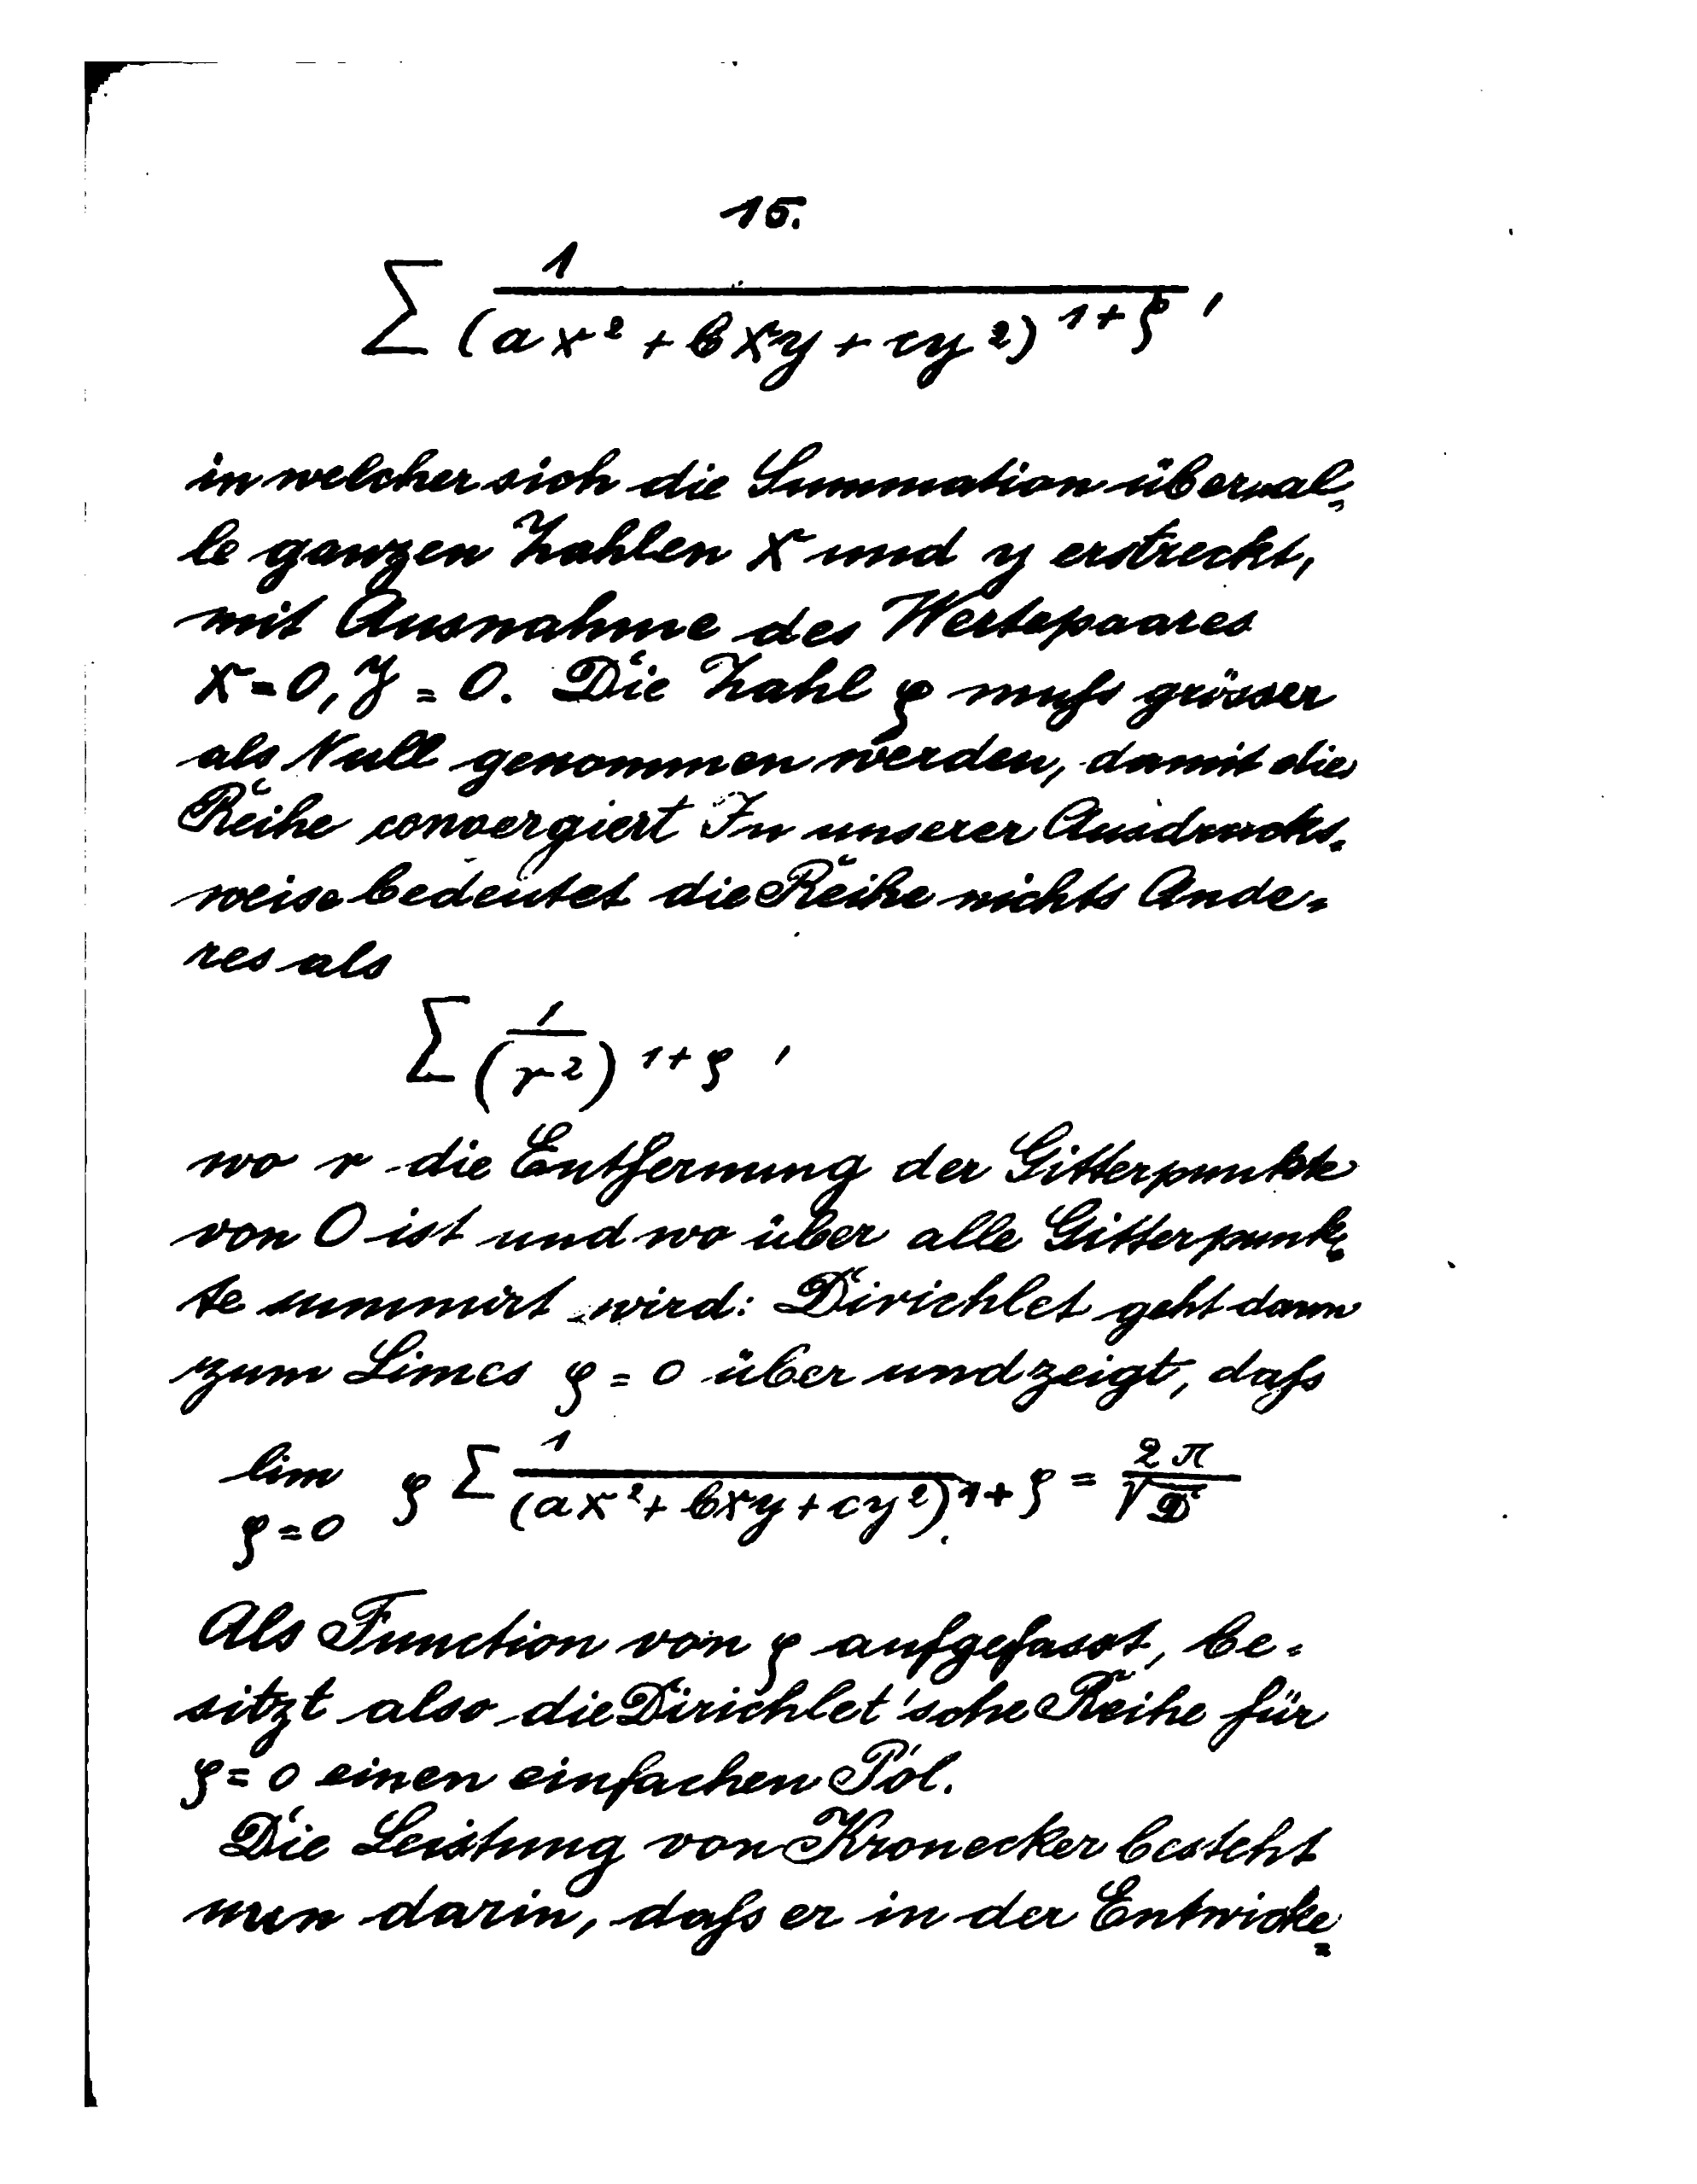 15.
∑ 1/(ax² + bxy + cy²)^{1+ρ},
in welcher sich die Summation über al=
le ganzen Zahlen x und y erstreckt,
mit Ausnahme des Wertepaares
x=0, y=0. Die Zahl ρ muſs grösser
als Null genommen werden, damit die
Reihe convergiert In unserer Ausdrucks=
weise bedeutet die Reihe nichts Ande=
res als
∑ (1/r²)^{1+ρ},
wo r die Entfernung der Gitterpunkte
von O ist und wo über alle Gitterpunk=
te summirt wird: Dirichlet geht dann
zum Limes ρ=0 über und zeigt, daſs
lim ρ=0 ρ ∑ 1/(ax² + bxy + cy²)^{1+ρ} = 2π/√D
Als Function von ρ aufgefasst, be=
sitzt also die Dirichlet'sche Reihe für
ρ=0 einen einfachen Pol.
Die Leistung von Kronecker besteht
nun darin, daſs er in der Entwicke=